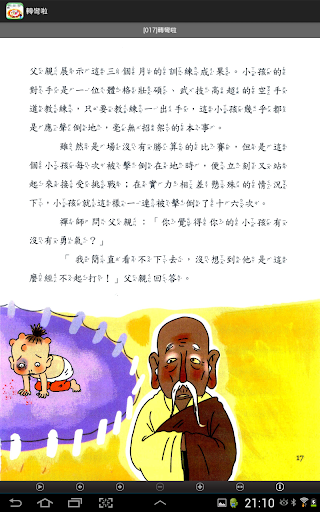 轉彎啦
[017]轉彎啦
父親展示這三個月的訓練成果。小孩的
對手是一位體格壯碩、武技高超的空手
道教練，只要教練一出手，這小孩幾乎都
是應聲倒地，毫無招架的本事。
雖然是場沒有勝算的比賽，但是這
個小孩每次被擊倒在地時，便立刻又站
起來接受挑戰；在實力相差懸殊的情況
下，小孩就這樣一連被擊倒了十六次。
禪師問父親：「你覺得你的小孩有
沒有勇氣？」
「我簡直看不下去，沒想到他是這
麼經不起打！」父親回答。
17
21:10